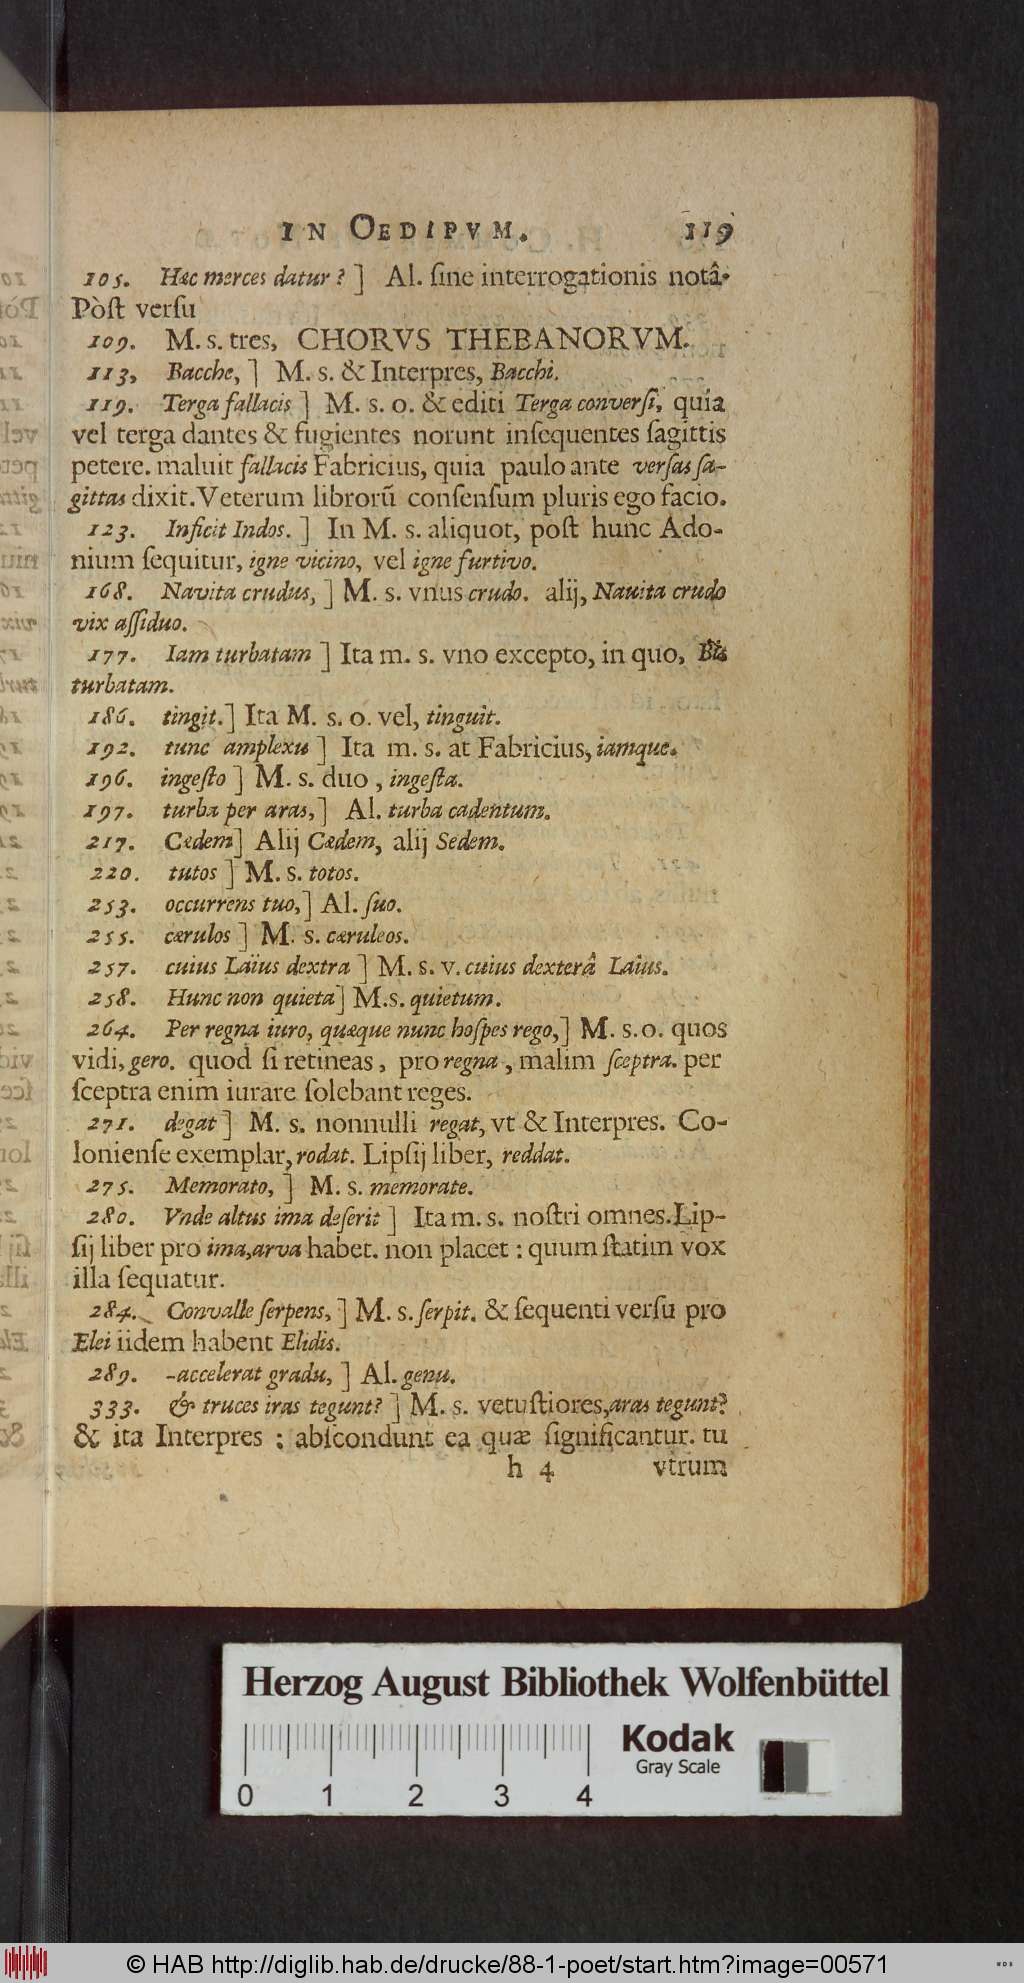 IN OEDIPVM. 119
105. Hæc merces datur? ] Al. ſine interrogationis notâ.
Pòſt verſu
109. M. s. tres, CHORVS THEBANORVM.
113, Bacche, ] M. s. & Interpres, Bacchi.
119. Terga fallacis ] M. s. o. & editi Terga converſi, quia
vel terga dantes & fugientes norunt inſequentes ſagittis
petere. maluit fallacis Fabricius, quia paulo ante verſas ſa-
gittas dixit. Veterum librorũ conſenſum pluris ego facio.
123. Inficit Indos. ] In M. s. aliquot, poſt hunc Ado-
nium ſequitur, igne vicino, vel igne furtivo.
168. Navita crudus, ] M. s. vnus crudo. alij, Nauita crudo
vix aſſiduo.
177. Iam turbatam ] Ita m. s. vno excepto, in quo,
turbatam.
186. tingit. ] Ita M. s. o. vel, tinguit.
192. tunc amplexu ] Ita m. s. at Fabricius, iamque.
196. ingeſto ] M. s. duo, ingeſta.
197. turba per aras, ] Al. turba cadentum.
217. Cædem ] Alij Cædem, alij Sedem.
220. tutos ] M. s. totos.
253. occurrens tuo, ] Al. ſuo.
255. cærulos ] M. s. cæruleos.
257. cuius Laïus dextra ] M. s. v. cuius dexterâ Laius.
258. Hunc non quieta ] M.s. quietum.
264. Per regna iuro, quæque nunc hoſpes rego, ] M. s.o. quos
vidi, gero. quod ſi retineas, pro regna, malim ſceptra. per
ſceptra enim iurare ſolebant reges.
271. degat ] M. s. nonnulli regat, vt & Interpres. Co-
lonienſe exemplar, rodat. Lipſij liber, reddat.
275. Memorato, ] M. s. memorate.
280. Vnde altus ima deſerit ] Ita m. s. noſtri omnes. Lip-
ſij liber pro ima, arva habet. non placet : quum ſtatim vox
illa ſequatur.
284. Convalle ſerpens, ] M. s. ſerpit. & ſequenti verſu pro
Elei iidem habent Elidis.
289. -accelerat gradu, ] Al. genu.
333. & truces iras tegunt? ] M. s. vetuſtiores, aras tegunt?
& ita Interpres : abſcondunt ea quæ ſignificantur. tu
h 4 vtrum
Herzog August Bibliothek Wolfenbüttel
Kodak
Gray Scale
0 1 2 3 4
© HAB http://diglib.hab.de/drucke/88-1-poet/start.htm?image=00571